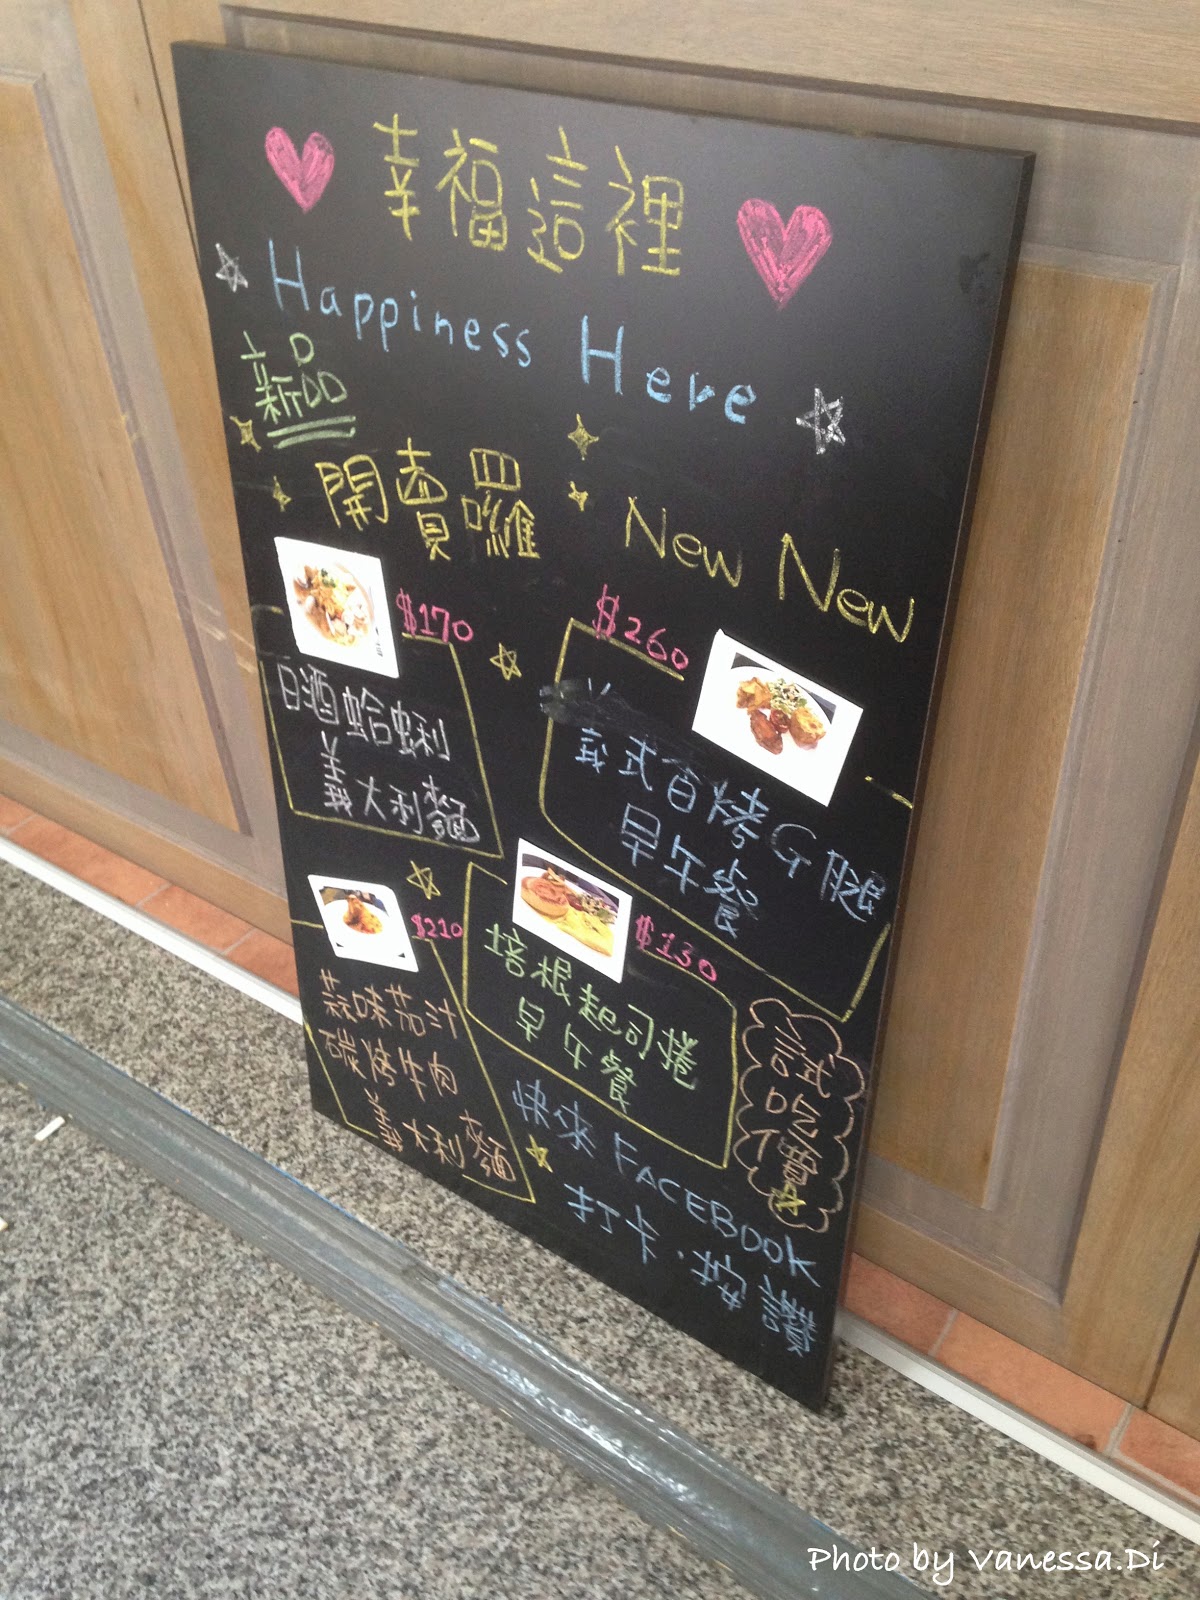 幸福這裡
Happiness Here
新品
開賣囉
New New
$170
日酒蛤蜊
義大利麵
$260
義式香烤G腿
早午餐
$210
蒜味茄汁
碳烤牛肉
義大利麵
$130
培根起司捲
早午餐
試吃價
快來 FACEBOOK
打卡.按讚
Photo by Vanessa.Di